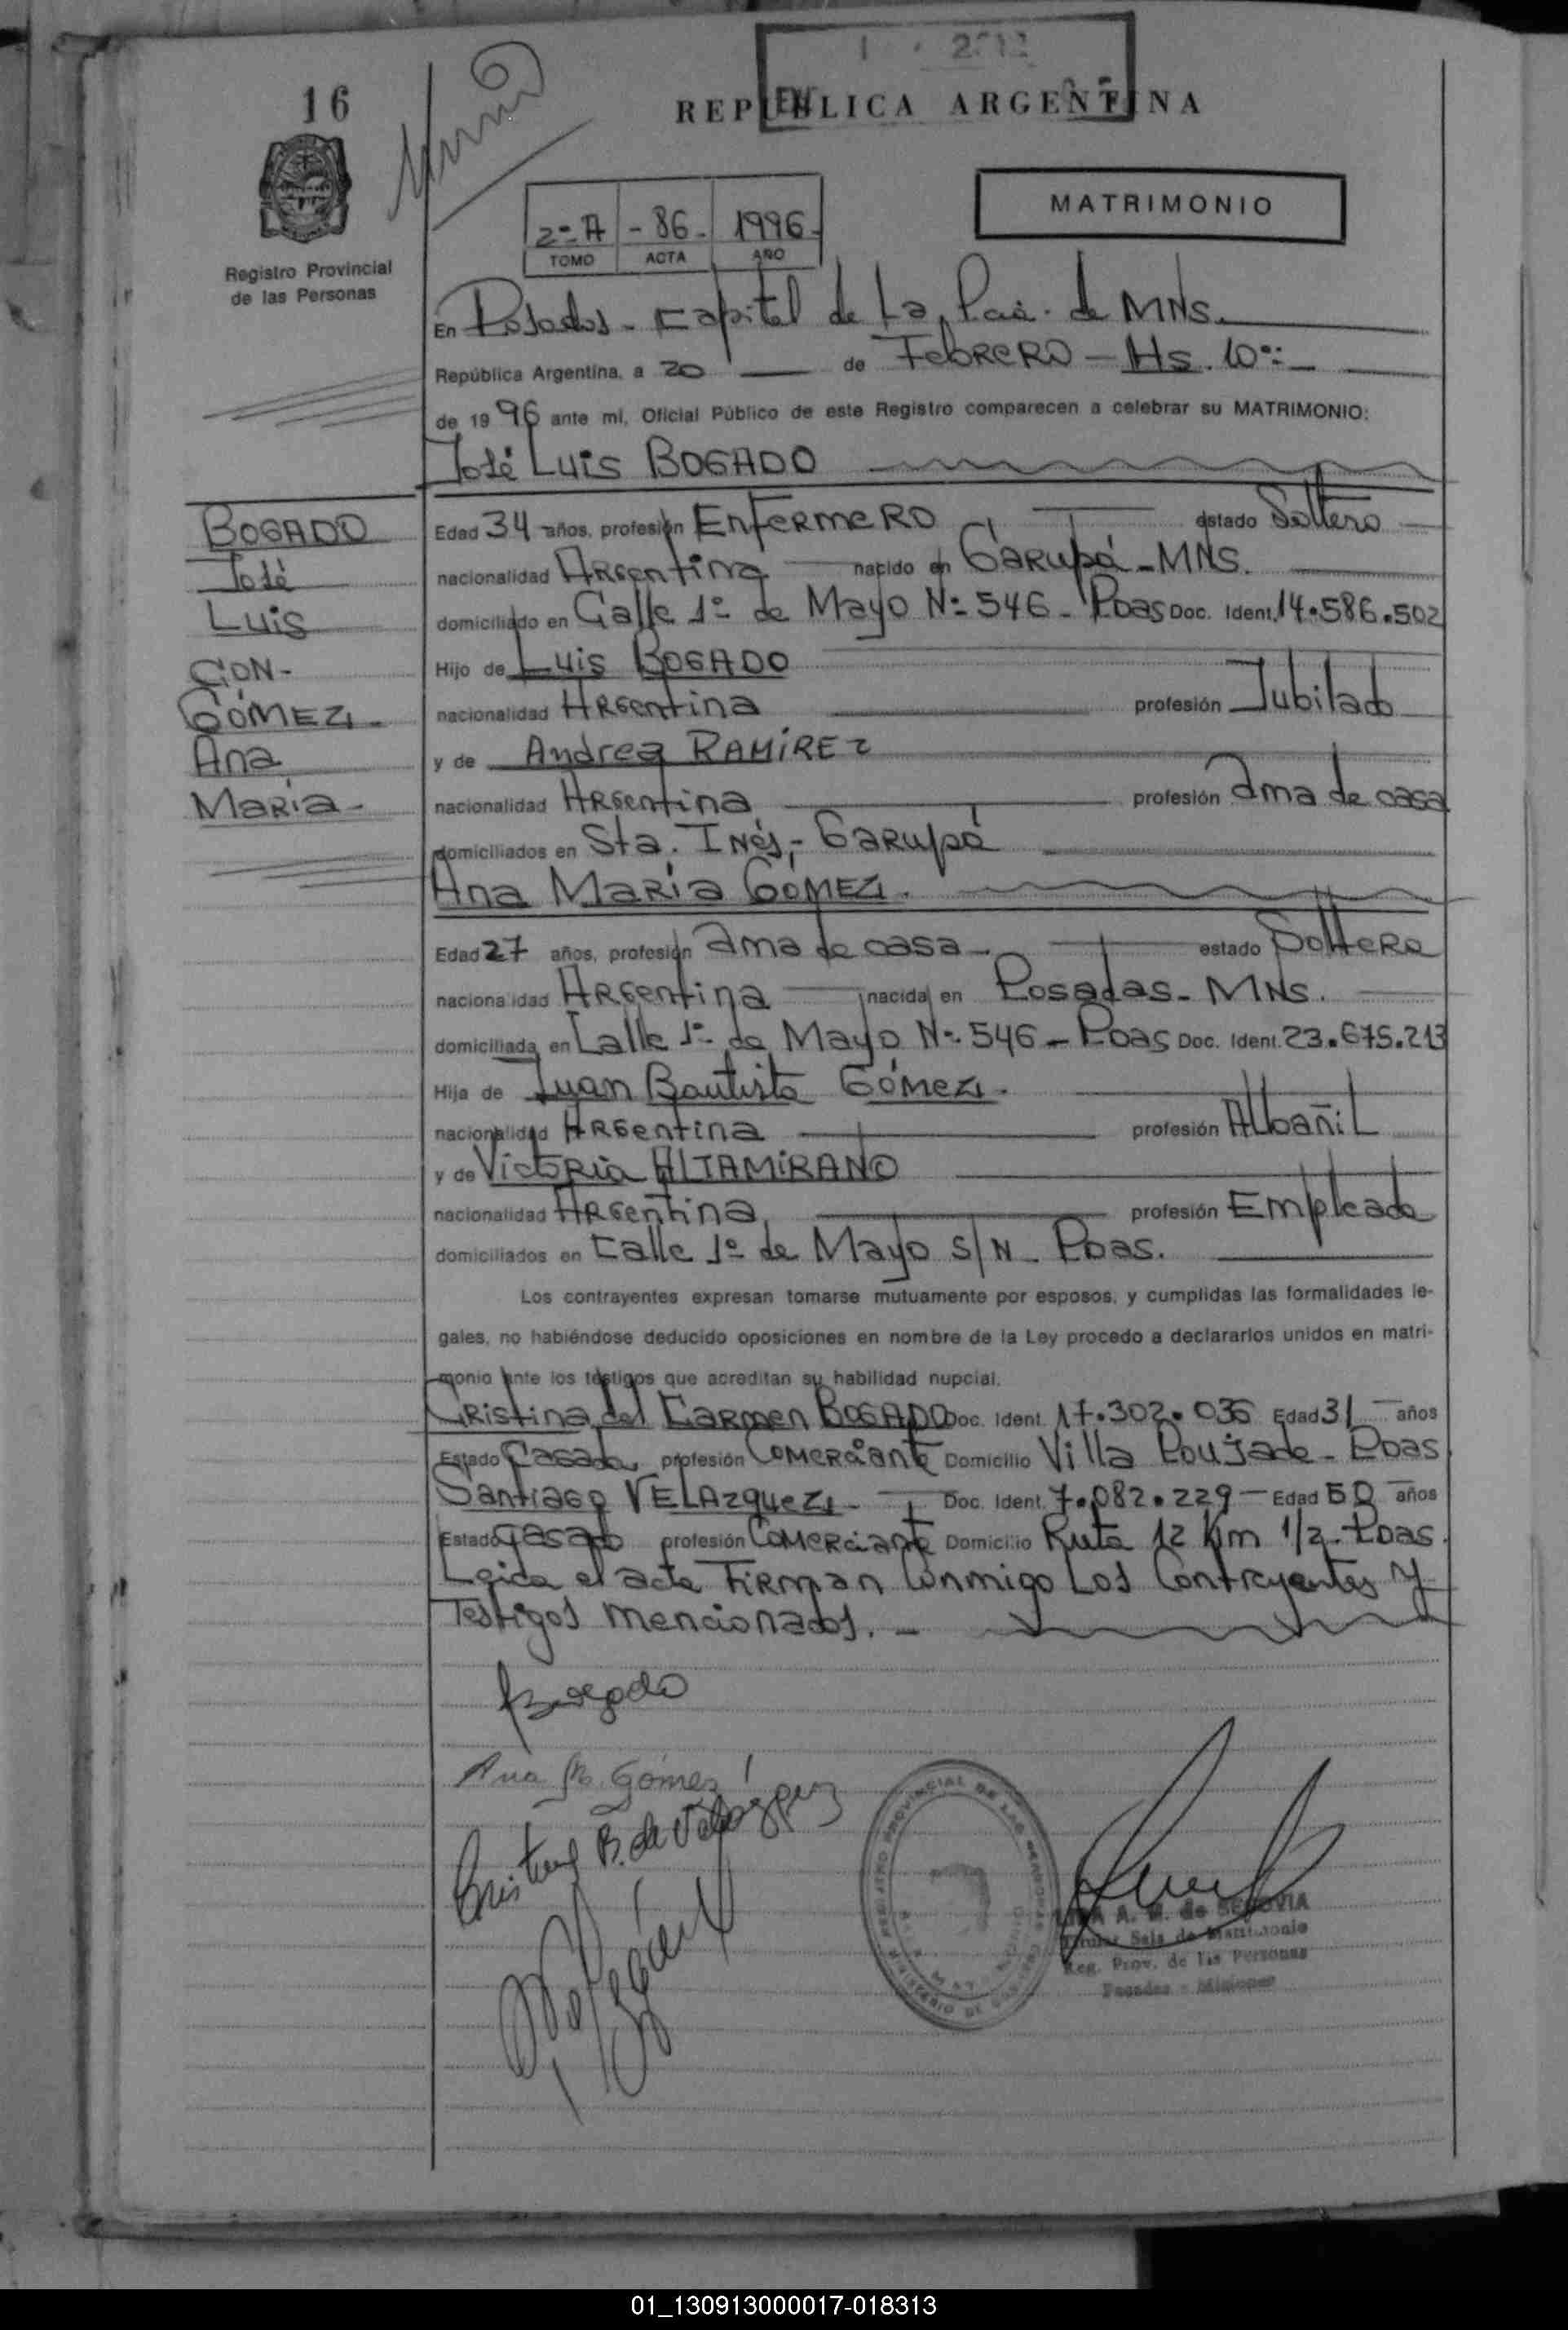 16
REPUBLICA ARGENTINA
MATRIMONIO
2º A - 86 - 1996 -
TOMO ACTA AÑO
Registro Provincial
de las Personas
En Posadas - Capital de La Pcia. de MNS.
República Argentina, a 20 de FebRERO - Hs. 10º:
de 1996 ante mi, Oficial Público de este Registro comparecen a celebrar su MATRIMONIO:
José Luis BOGADO
BOGADO
José
Luis
CON-
GÓMEZ -
Ana
María -
Edad 34 años, profesión EnfermeRO estado Soltero
nacionalidad Argentina nacido en Garupá - MNS.
domiciliado en Calle 1º de Mayo Nº 546 - Pdas Doc. Ident. 14.586.502
Hijo de Luis BOGADO
nacionalidad Argentina profesión Jubilado
y de Andrea RAMÍREZ
nacionalidad Argentina profesión ama de casa
domiciliados en Sta. Inés, - Garupá
Ana María GÓMEZ.
Edad 27 años, profesión ama de casa - estado Soltera
nacionalidad Argentina nacida en Posadas - MNS.
domiciliada en Calle 1º de Mayo Nº 546 - Pdas Doc. Ident. 23.675.213
Hija de Juan Bautista Gómez.
nacionalidad Argentina profesión Albañil
y de Victoria ALTAMIRANO
nacionalidad Argentina profesión Empleada
domiciliados en Calle 1º de Mayo S/N - Pdas.
Los contrayentes expresan tomarse mutuamente por esposos, y cumplidas las formalidades le-
gales, no habiéndose deducido oposiciones en nombre de la Ley procedo a declararlos unidos en matri-
monio ante los testigos que acreditan su habilidad nupcial.
Cristina del Carmen BOGADO Doc. Ident. 17.302.036 Edad 31 años
Estado Casada profesión Comerciante Domicilio Villa Poujade - Pdas
Santiago VELAzquez - Doc. Ident. 7.082.229 - Edad 50 años
Estado Casado profesión Comerciante Domicilio Ruta 12 Km 1/2 - Pdas.
Leida el acta Firman Conmigo Los Contrayentes y
Testigos mencionados. -
Bogado
Ana M. Gómez
Cristina B. de Velazquez
A. M. de SEGOVIA
Titular Sala de Matrimonio
Reg. Prov. de las Personas
Posadas - Misiones
01_130913000017-018313